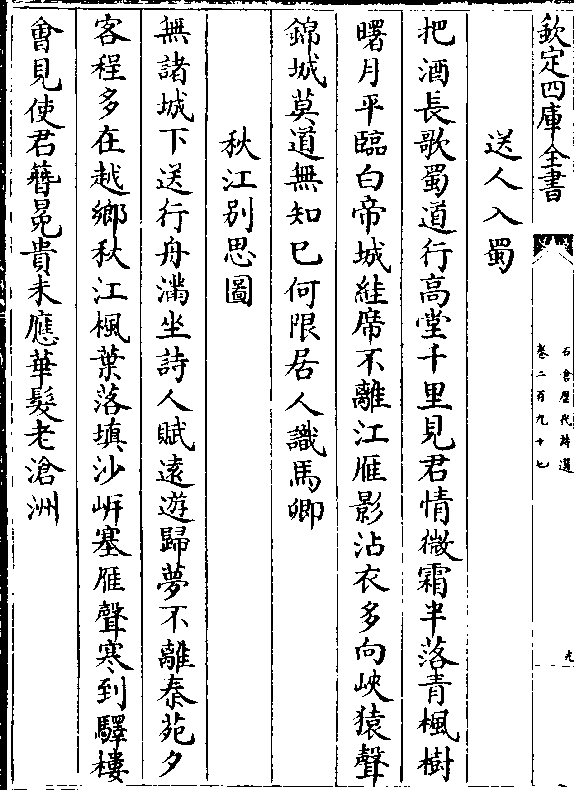 欽定四庫全書
石倉歷代詩選
卷二百九十七
九
送人入蜀
把酒長歌蜀道行高堂千里見君情微霜半落青楓樹
曙月平臨白帝城絓席不離江雁影沾衣多向峽猿聲
錦城莫道無知已何限居人識馬卿
秋江别思圖
無諸城下送行舟滿坐詩人賦遠遊歸夢不離秦苑夕
客程多在越鄉秋江楓葉落填沙㟁塞雁聲寒到驛樓
會見使君簪冕貴未應華髮老滄洲